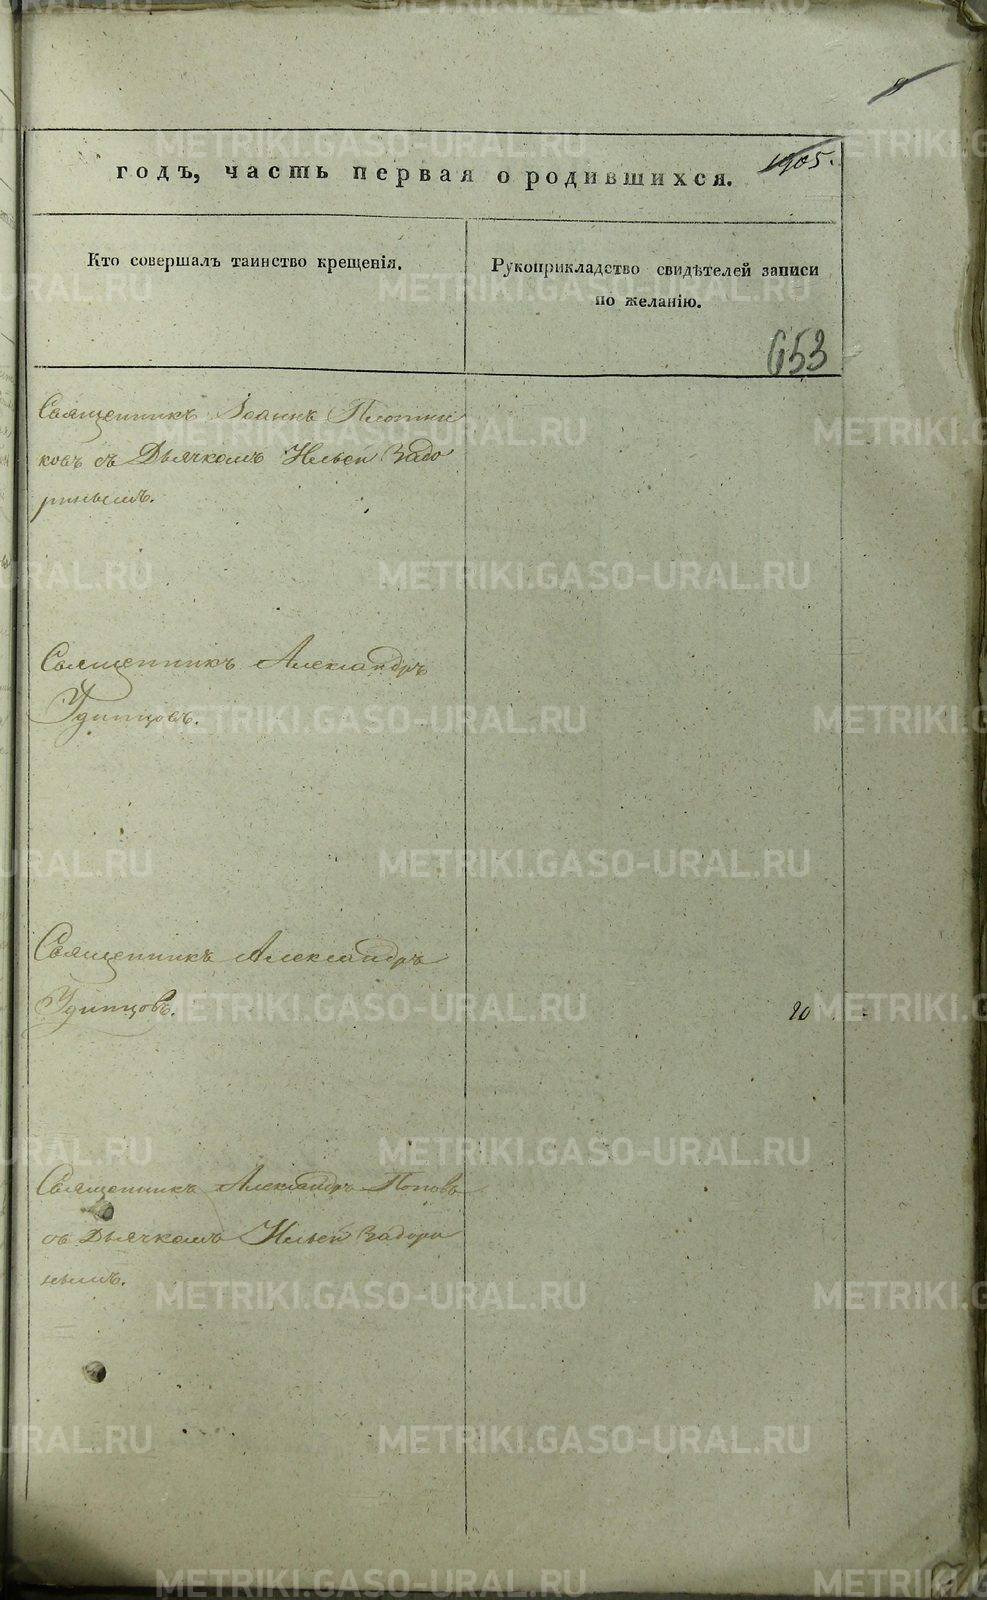 1905.
годъ, часть первая о родившихся.
Кто совершалъ таинство крещенія.
Рукоприкладство свидѣтелей записи
по желанію.
653
Священникъ Іоаннъ Плотни
ковъ съ Дьячкомъ Ильей Задо
ринымъ.
Священникъ Александръ
Удинцовъ.
Священникъ Александръ
Удинцовъ.
20
Священникъ Александръ Поповъ
съ Дьячкомъ Ильей Задори
нымъ.
METRIKI.GASO-URAL.RU